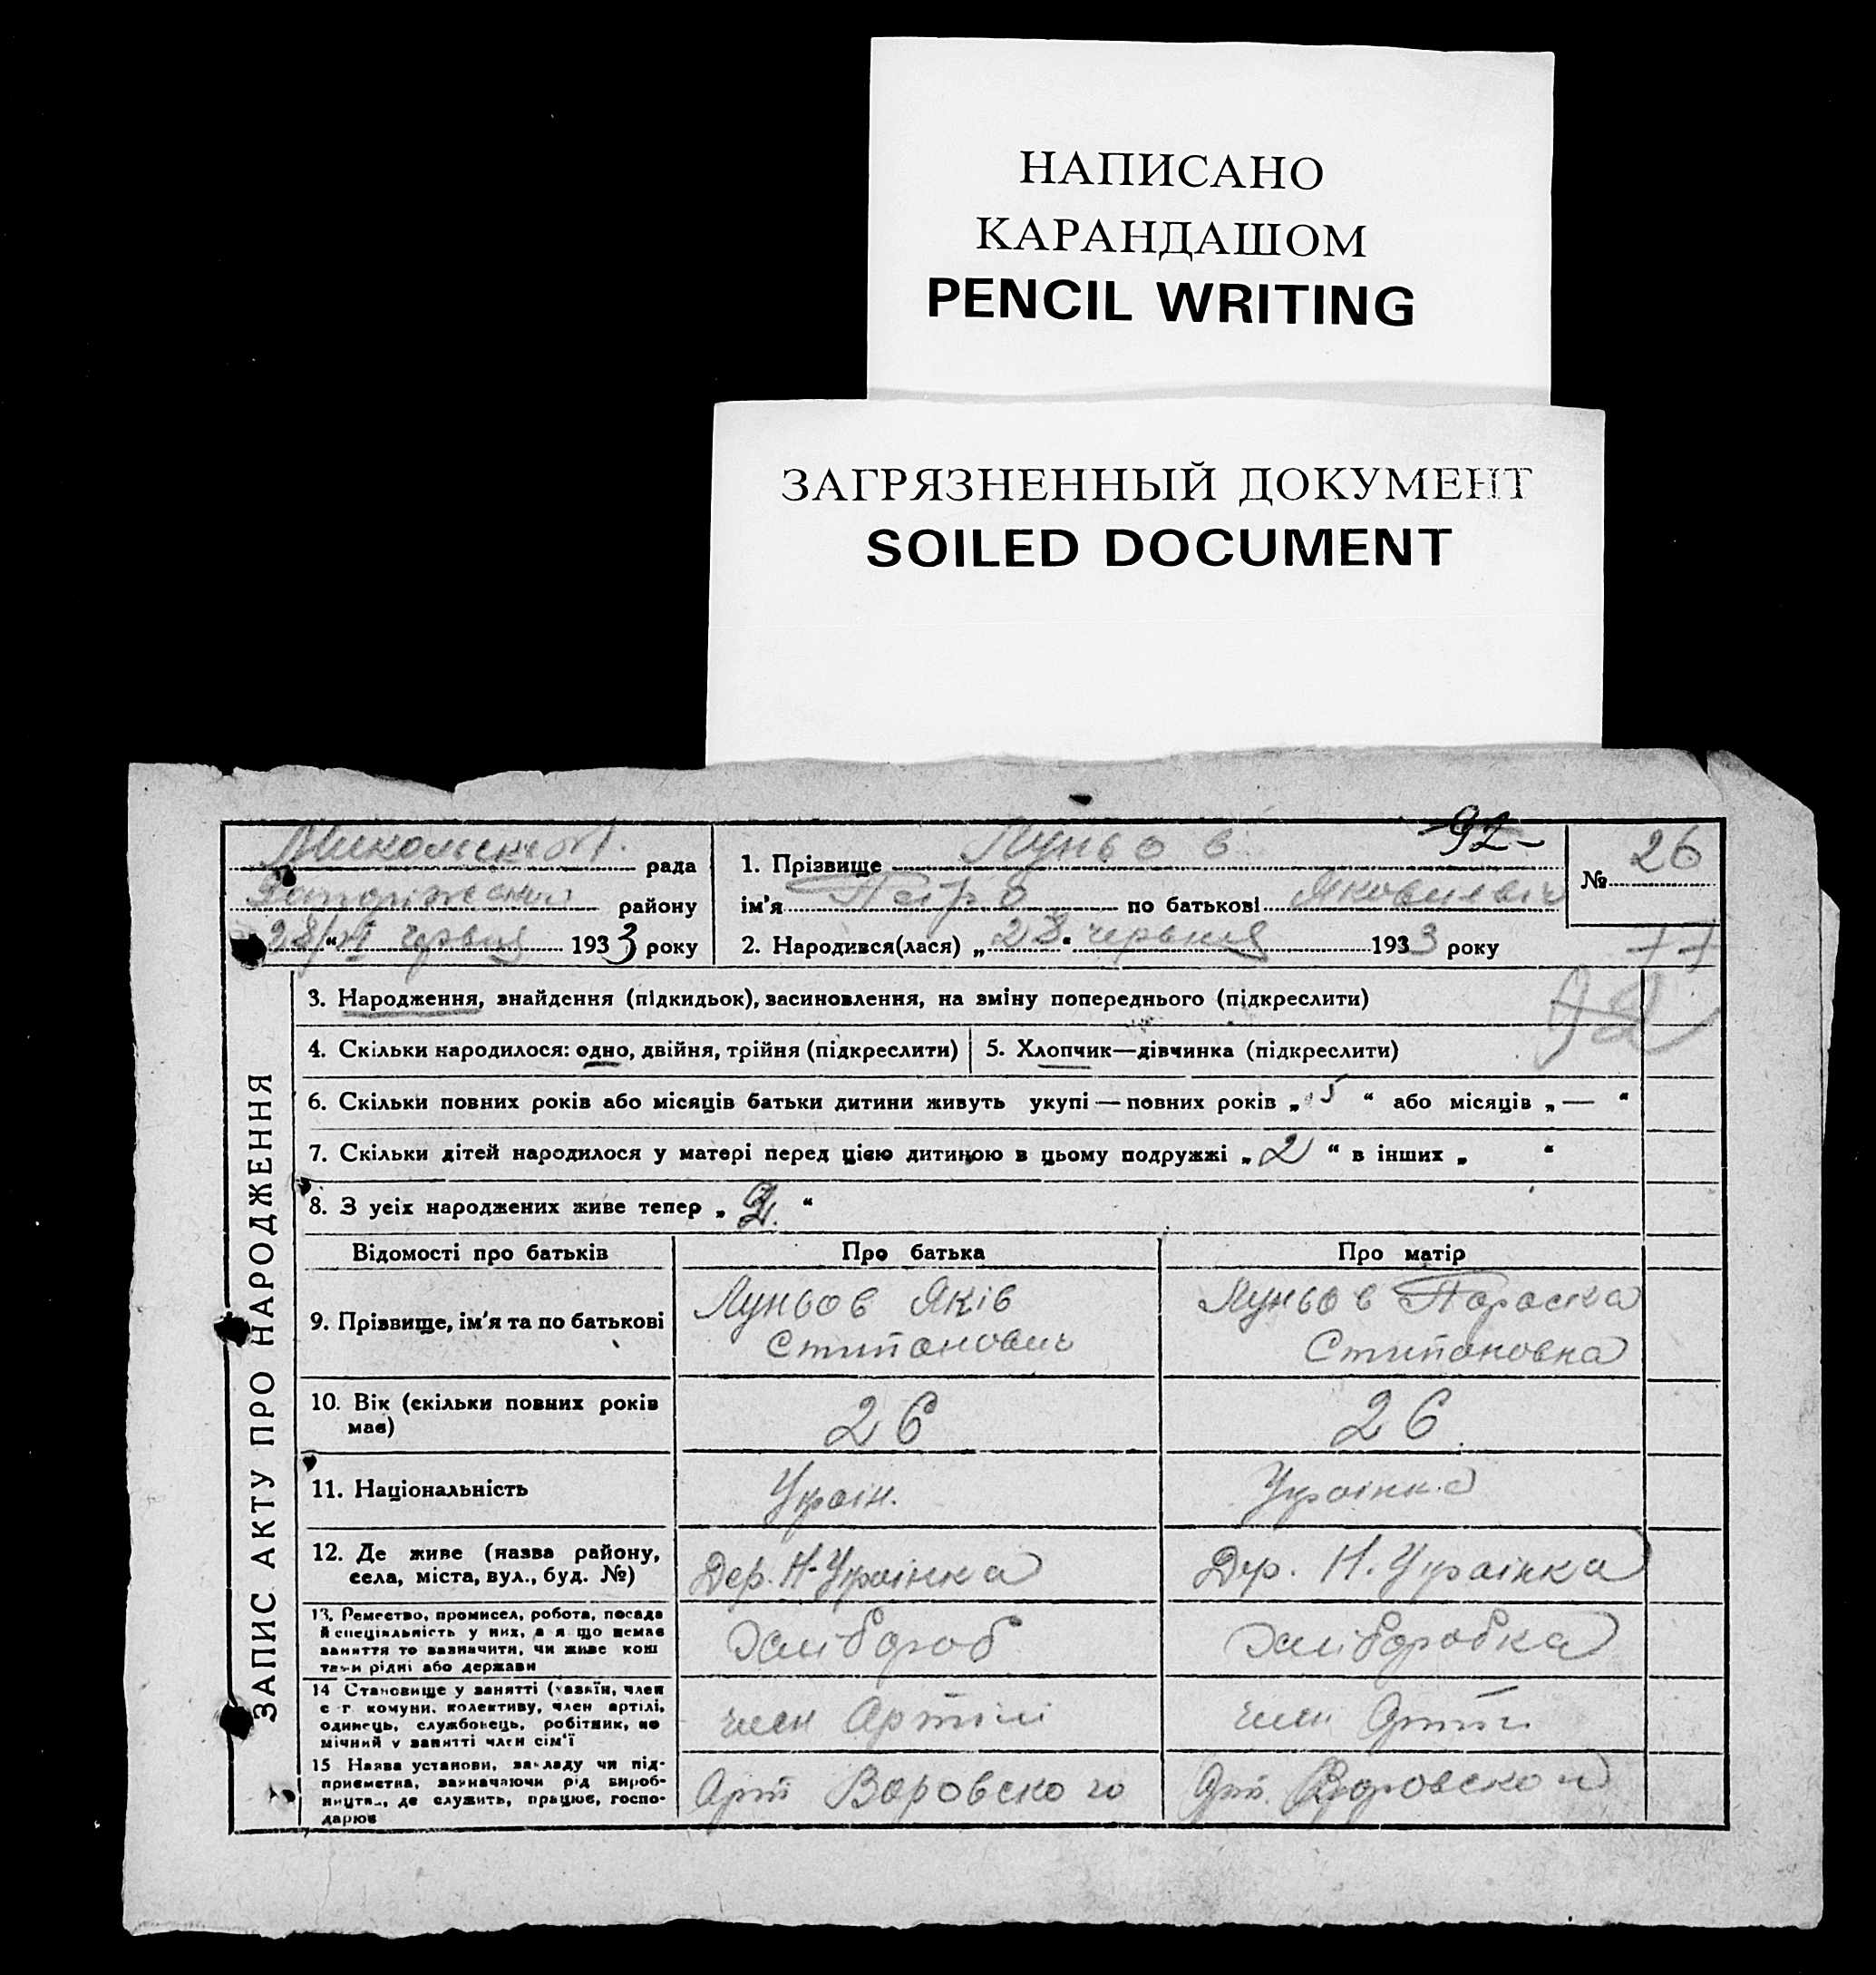 НАПИСАНО
КАРАНДАШОМ
PENCIL WRITING
ЗАГРЯЗНЕННЫЙ ДОКУМЕНТ
SOILED DOCUMENT
рада
району
28/VI червня 1933 року
1. Прізвище Луньов
92
ім'я Петро по батькові Яковлевіч
2. Народився(лася) „28“ червня 1933 року
№ 26
ЗАПИС АКТУ ПРО НАРОДЖЕННЯ
3. Народження, знайдення (підкидьок), засиновлення, на зміну попереднього (підкреслити)
4. Скільки народилося: одно, двійня, трійня (підкреслити)
5. Хлопчик—дівчинка (підкреслити)
6. Скільки повних років або місяців батьки дитини живуть укупі — повних років „ 5 “ або місяців „ — “
7. Скільки дітей народилося у матері перед цією дитиною в цьому подружжі „ 2 “ в інших „ “
8. З усіх народжених живе тепер „ “
Відомості про батьків
Про батька
Про матір
9. Прізвище, ім'я та по батькові
Луньов Яків
Стипанович
Луньов Параска
Стипановна
10. Вік (скільки повних років
має)
26
26
11. Національність
Украін.
Украінка
12. Де живе (назва району,
села, міста, вул., буд. №)
Дер. Н-Украінка
Дер. Н. Украінка
13. Ремество, промисел, робота, посада
й спеціяльність у них, а я що немає
заняття то зазначити, чи живе кош
тами рідні або держави
Хлібороб
Хліборобка
14 Становище у занятті (хазяїн, член
с г комуни, колективу, член артілі,
одинець, службовець, робітник, по
мічний у занятті член сім'ї
член Артілі
член Артілі
15 Назва установи, закладу чи під-
приємства, зазначаючи рід вироб-
ництва, де служить, працює, госпо-
дарює
Арт Воровского
Арт. Воровского